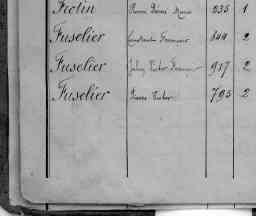 Fietin Pierre Désiré Marie 235 1
Fuselier Constantin Fremeur 844 2
Fuselier Jules Victor 957 2
Fuselier Pierre Victor 795 2